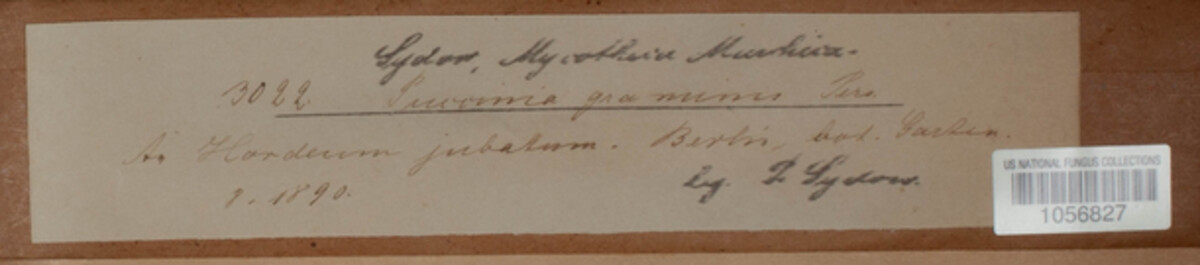 Sydow, Mycotheca Marchica.
3022 Puccinia graminis Pers
An Hordeum jubatum. Berlin, bot. Garten.
8. 1890.
leg. P. Sydow.
US NATIONAL FUNGUS COLLECTIONS
1056827